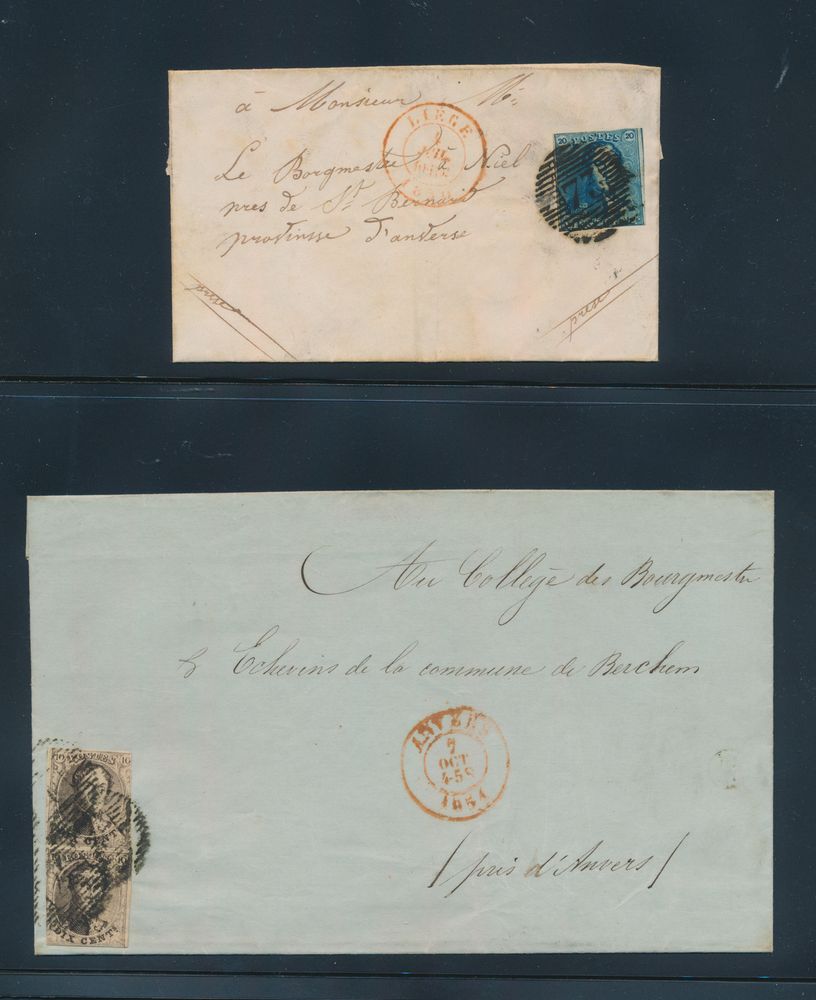 à Monsieur Mr
LIEGE
Le Borgmestre à Niel
pres de St Bernard
provinsse d'anverse
prise
prise
20 POSTES 20
73
Au Collège des Bourgmestre
& Echevins de la commune de Berchem
ANVERS
7
OCT
4-5S
1851
/ près d'Anvers /
10 POSTES 10
DIX CENTS